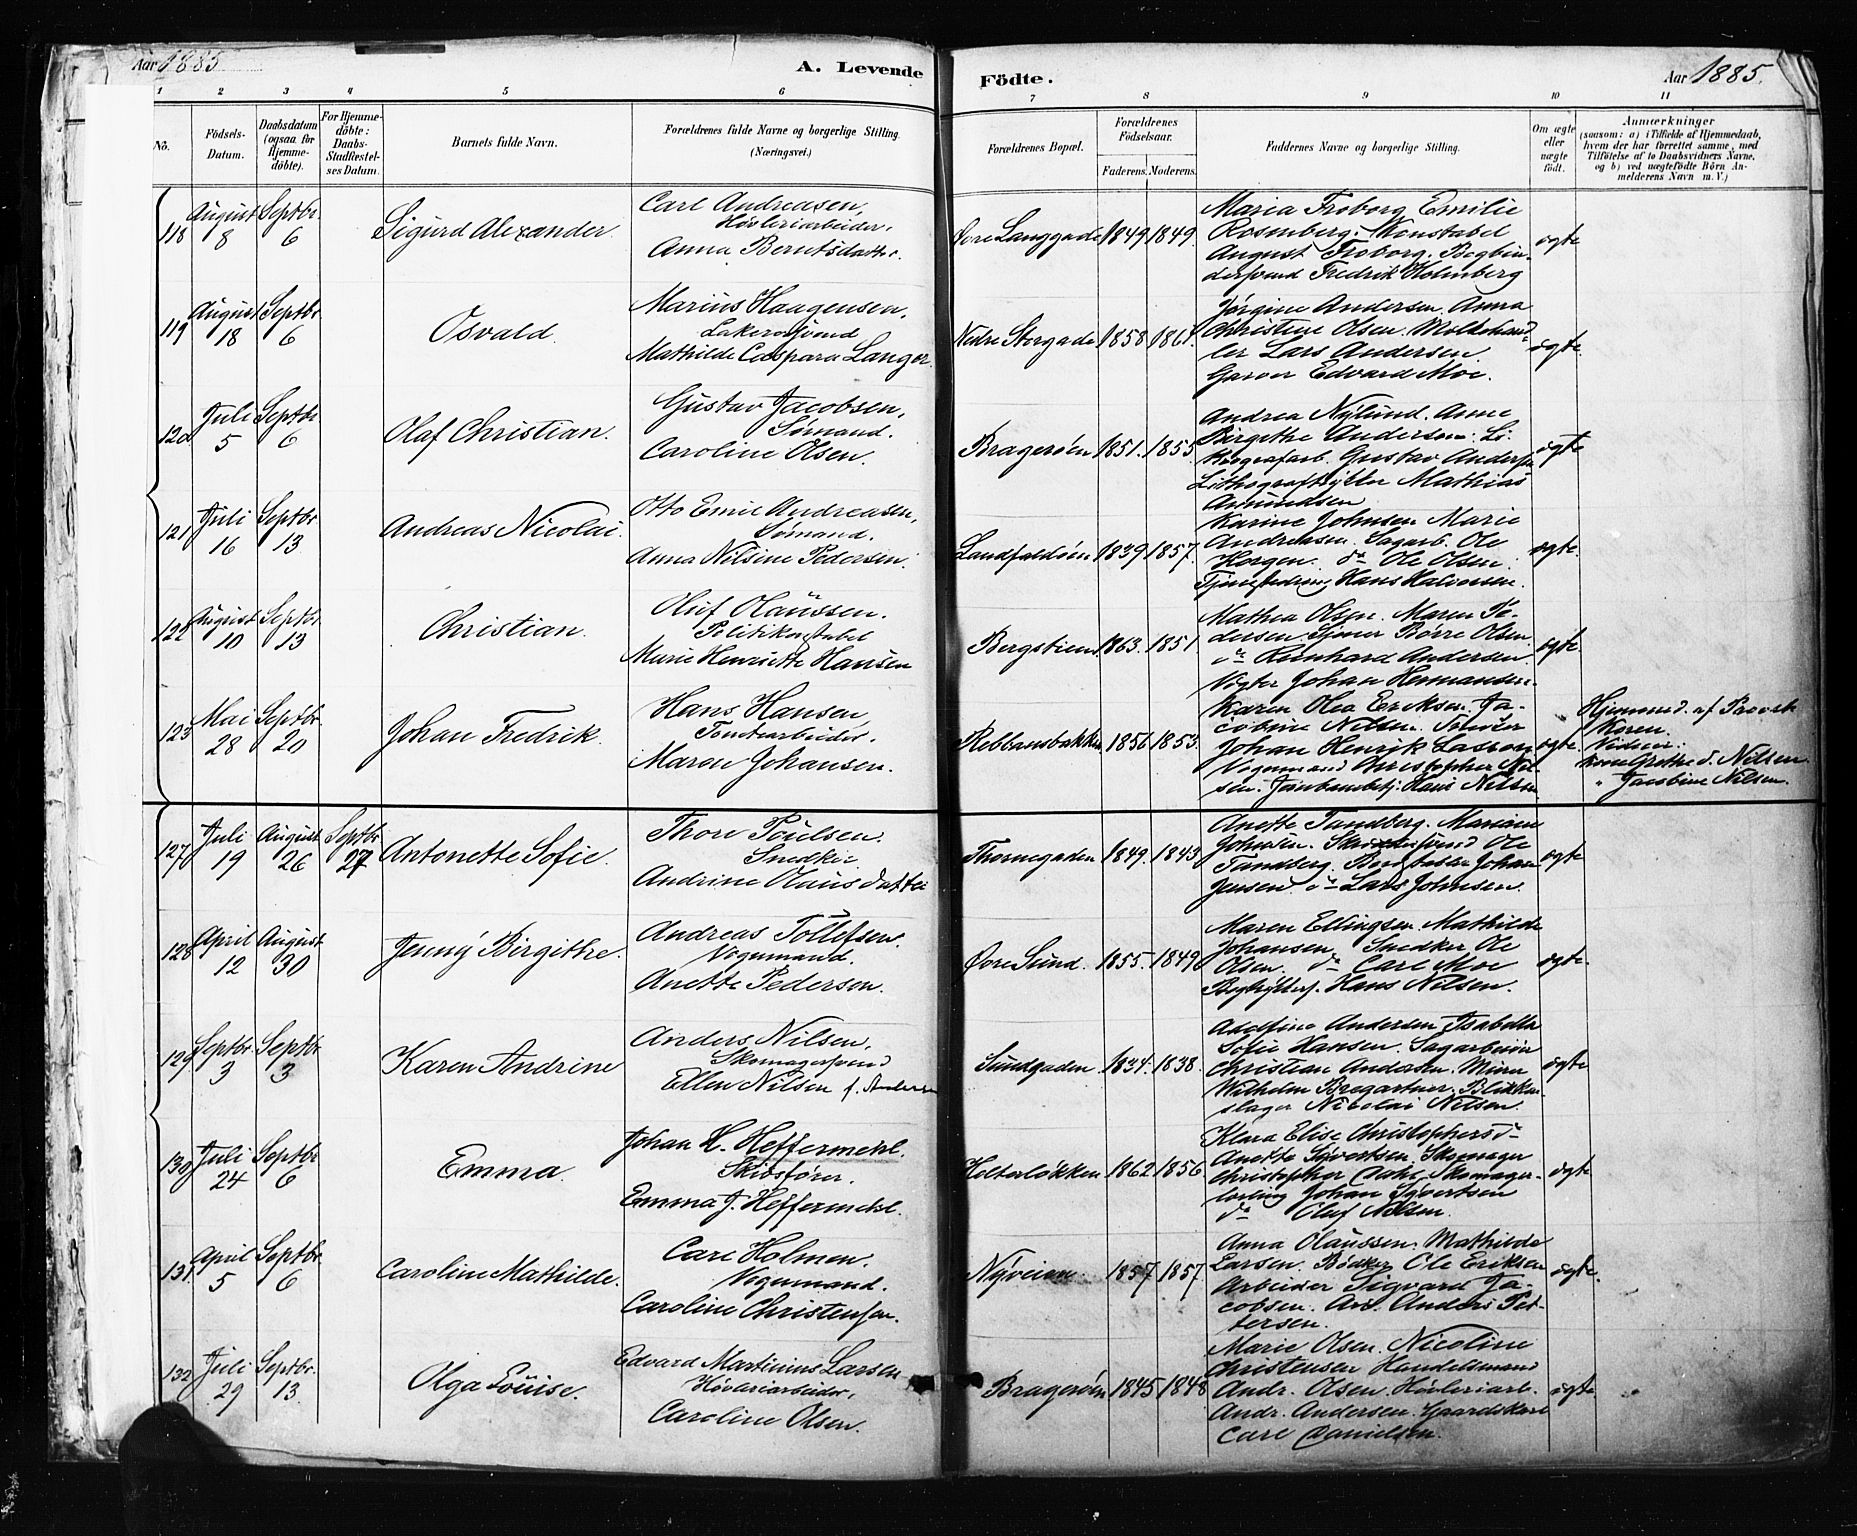 Aar 1885
A. Levende Födte.
Aar 1885.
1 2 3 4 5 6 7 8 9 10 11
No.
Födsels-Datum.
Daabsdatum (ogsaa for Hjemmedöbte).
For Hjemmedöbte: Daabs-Stadfæstelses Datum.
Barnets fulde Navn.
Forældrenes fulde Navne og borgerlige Stilling. (Næringsvei.)
Forældrenes Bopæl.
Forældrenes Födselsaar.
Faderens. Moderens.
Faddernes Navne og borgerlige Stilling.
Om ægte eller uægte födt.
Anmærkninger
(saasom: a) i Tilfælde af Hjemmedaab, hvem der har forrettet samme, med Tilföielse af to Daabsvidners Navne, og b) ved uægtefödte Börn Anmelderens Navn m. V.)
118 August 8 Septbr 6 Sigurd Alexander.
Carl Andreasen,
Høvleriarbeider.
Anna Berntsdatter.
Øvre Langgade 1849. 1849.
Maria Froborg. Emilie
Rosenberg. Konstabel
August Froborg. Bogbin-
dersvend Fredrik Holmberg
ægte
119 August 18 Septbr 6 Osvald.
Marius Haagensen,
Mathilde Caspara Langer.
Nedre Storgade 1858 1861.
Jørgine Andersen. Anna
Christine Olsen. Melkehand-
ler Lars Andersen.
Garver Edvard Moe.
ægte.
120 Juli 5 Septbr 6 Olaf Christian.
Gustav Jacobsen,
Sømand.
Caroline Olsen.
Bragerøen 1851. 1855.
Andrea Nylund. Anne
Birgithe Andersen. Li-
Gustav Andersen
Mathias
Amundsen
ægte
121 Juli 16 Septbr 13 Andreas Nicolai.
Otto Emil Andreasen,
Sømand.
Anna Nilsine Pedersen.
Landfaldøen 1839. 1857.
Karine Johnsen Marie
Andreasen. Sagarb. Ole
Horgen. do Ole Olsen.
Hans Halvorsen.
ægte.
122 August 10 Septbr 13 Christian.
Oluf Olaussen.
Politikonstabel
Marie Henriette Hansen
Bergstien. 1863. 1851
Mathea Olsen. Maren Pe-
dersen. Børre Olsen
do Reinhard Andersen.
Vægter Johan Hermansen.
ægte.
123 Mai 28 Septbr. 20 Johan Fredrik.
Hans Hansen,
Tomtearbeider.
Maren Johansen.
Rebbansbakken 1856 1853.
Karen Olea Eriksen. Ja-
cobine Nilsen.
Johan Henrik
Vognmand Christopher Nil-
sen. Jernbanebetj. Hans Nilsen
ægte.
Hjemmed. af Provst
Koren.
Vidner:
Grethe d. Nilsen
" Jacobine Nilsen.
127 Juli 19 August 26 Septbr 27 Antonette Sofie.
Thore Poulsen.
Snedker
Andrine Olausdatter
Thornegaden 1849. 1843
Anette Tandberg. Mariane
Johnsen. Ole
Tandberg. Johan
Jensen. do Lars Johnsen.
ægte
128 April 12 August 30 Jenny Birgithe.
Andreas Tollefsen.
Vognmand.
Anette Pedersen.
Øvre Sund. 1855. 1849
Maren Ellingsen. Mathilde
Johansen. Snedker Ole
Olsen. do Carl Moe
Hans Nilsen.
ægte.
129 Septbr. 3 Septbr 3 Karen Andrine
Anders Nilsen,
Skomagersvend
Ellen Nilsen f. Andersen
Sundgaden 1834. 1838.
Adolfine Andersen. Isabella
Sofie Hansen. Sagarbeider
Christian Andersen. Murer
Wilhelm Bregartner. Blikken-
slager Nicolai Nilsen.
ægte
130 Juli 24 Septbr 6 Emma.
Johan H. Heffermehl.
Skibsfører.
Emma J. Heffermehl.
Holterløkken 1862. 1856
Klara Elise Christophersd-
Anette Syvertsen. Skomager
Christopher Skomager-
lærling Johan Syvertsen
do Oluf Nilsen.
ægte
131 April 5 Septbr 6 Caroline Mathilde.
Carl Holmen.
Vognmand.
Caroline Christensen.
Nyveien. 1857 1857
Anna Olaussen. Mathilde
Larsen. Bødker Ole Eriksen
Arbeider Sigvard Ja-
cobsen. Arb. Anders Pet-
tersen.
ægte.
132 Juli 29 Septbr. 13 Olga Louise.
Edvard Martinius Larsen
Høvleriarbeider,
Caroline Olsen.
Bragerøen 1845 1848
Marie Olsen. Nicoline
Christensen Handelsmand
Andr. Olsen. Høvleriarb.
Andr. Andersen. Gaardskarl
Carl Danielsen.
ægte